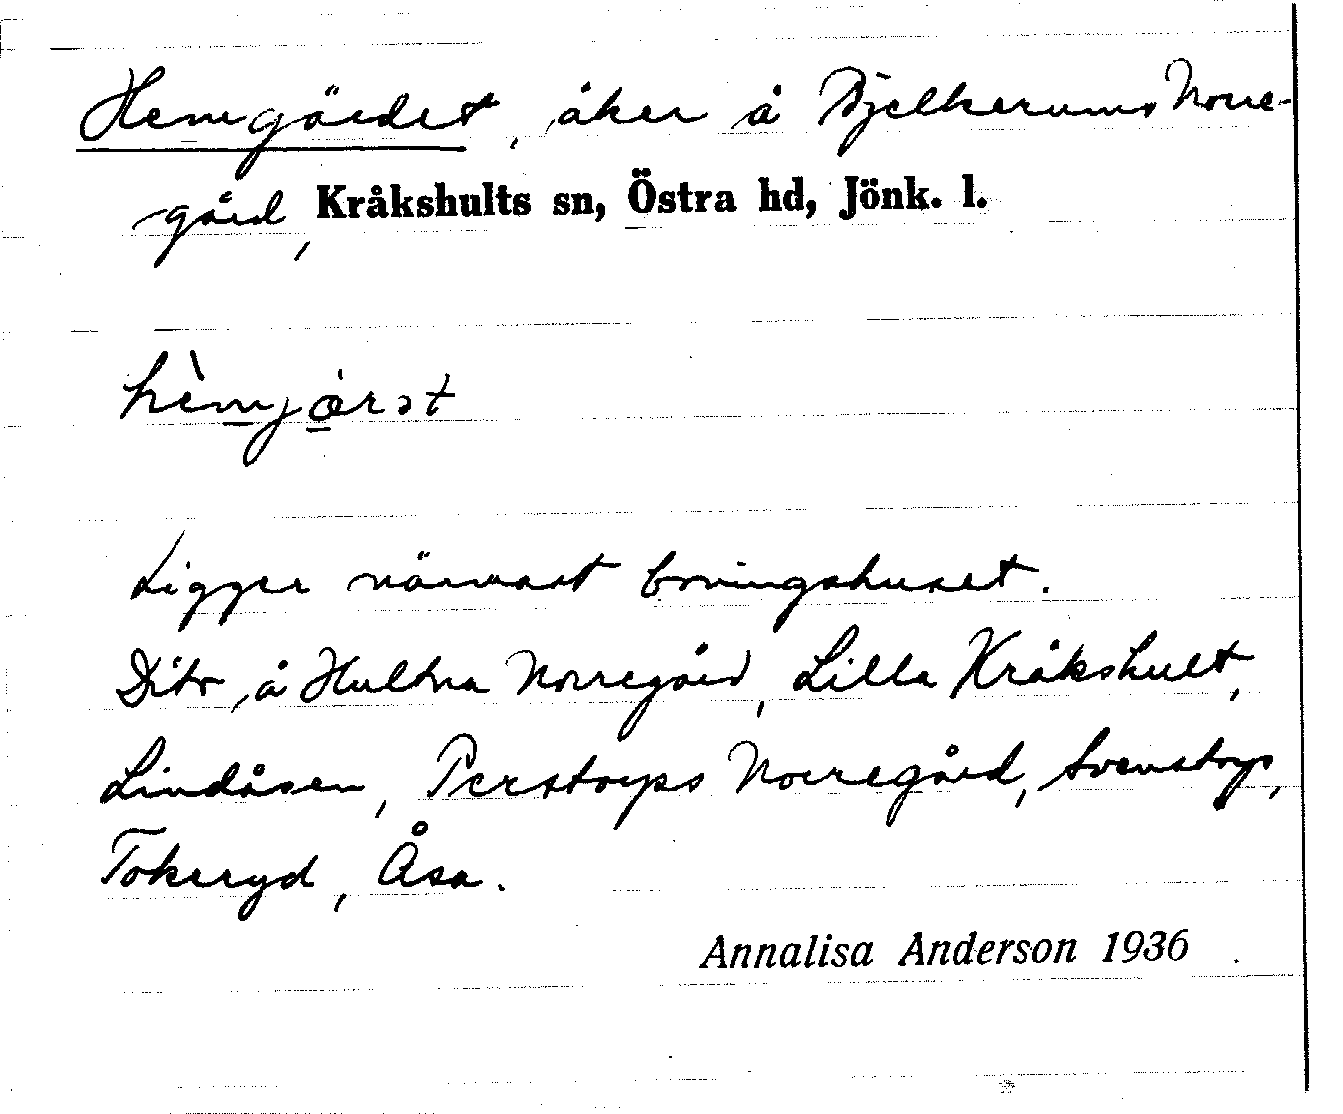 Hemgärdet, åker å Bjelkerums Norre-
gård, Kråkshults sn, Östra hd, Jönk. l.
Ligger närmast boningshuset.
Dito å Hultna Norregård, Lilla Kråkshult,
Lindåsen, Perstorps Norregård, Svenstorp,
Tokeryd, Åsa.
Annalisa Anderson 1936